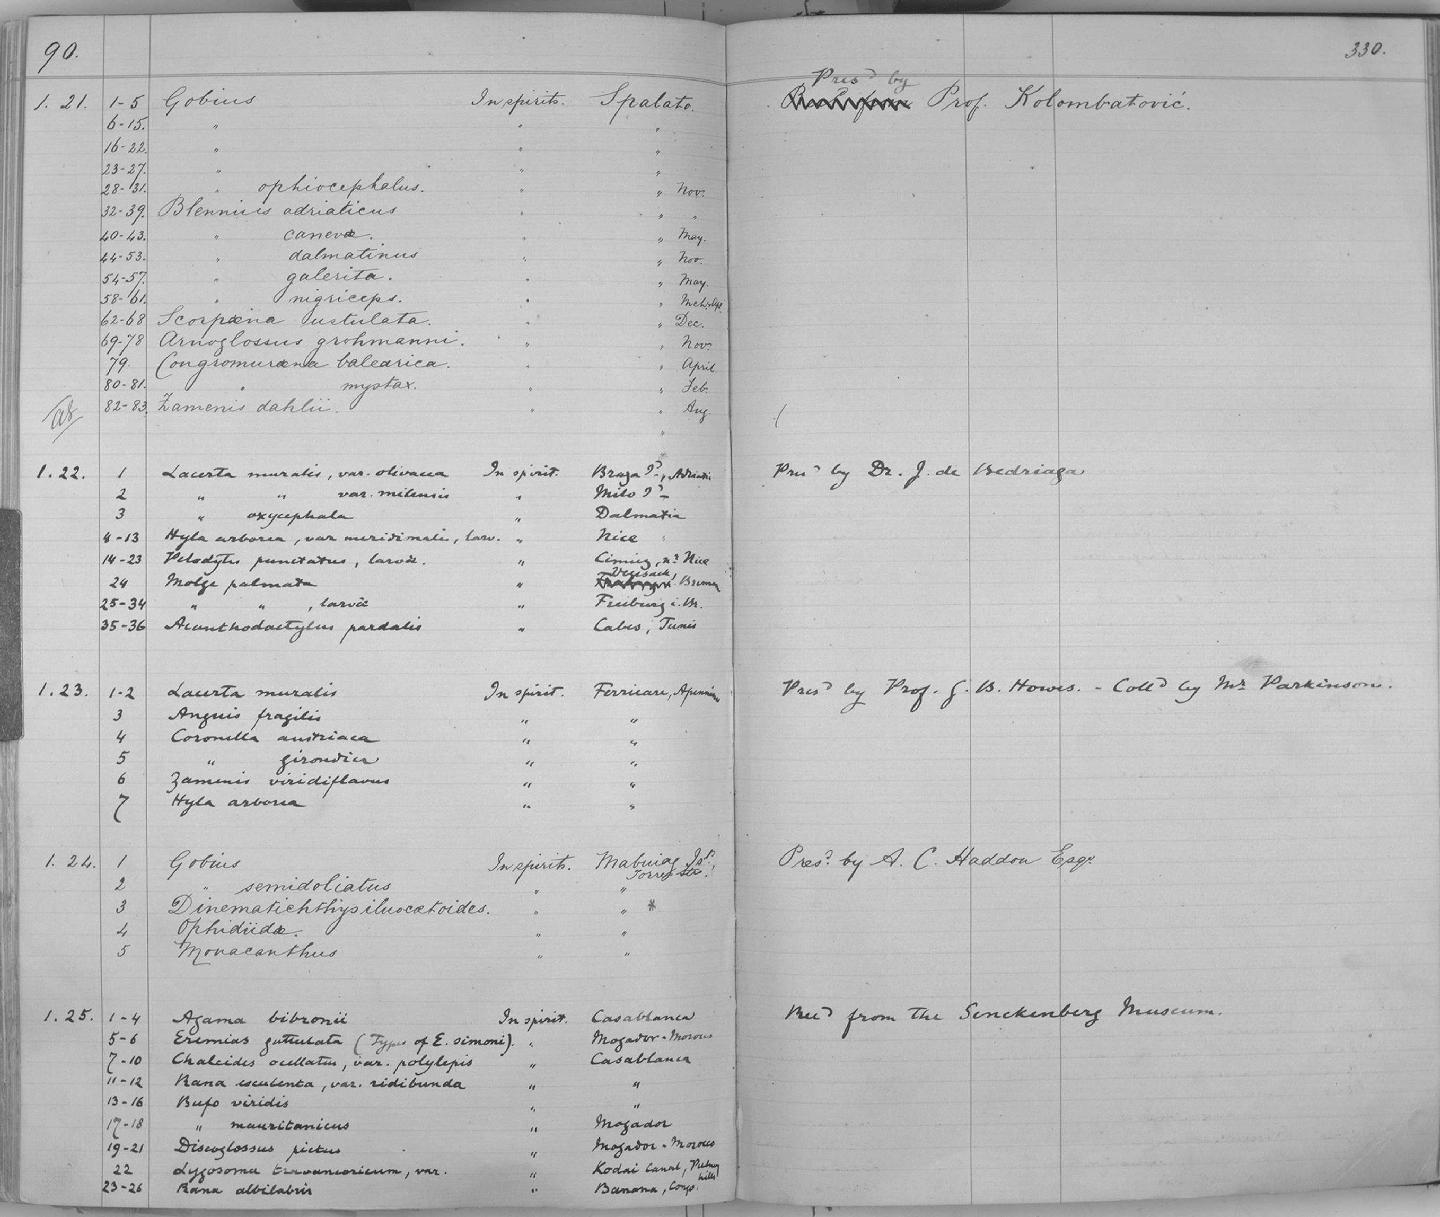 90.
330.
Presd by
1. 21. 1-5 Gobius In spirits. Spalato. Prof. Kolombatović.
6-15. " " "
16-22. " " "
23-27. " " "
28-31. " ophiocephalus. " " Novr.
32-39. Blennius adriaticus " " "
40-43. " canevæ. " " May.
44-53. " dalmatinus " " Nov.
54-57. " galerita. " " May.
58-61. " nigriceps. " "
62-68 Scorpæna ustulata. " " Dec.
69-78 Arnoglossus grohmanni. " " Novr.
79. Congromuræna balearica. " " April
80-81. " mystax. " " Feb.
82-83. Zamenis dahlii. " " Aug
"
1. 22. 1 Lacerta muralis, var. olivacea In spirit. Adriatic Presd by Dr. J. de Bedriaga
2 " " var. milensis " Milo Id.
3 " oxycephala " Dalmatia
4-13 Hyla arborea, var meridionalis, larv. " Nice
14-23 Pelodytes punctatus, larvæ. " Cimiez, nr Nice
24 Molge palmata " Vegesack, Bremen
25-34 " " , larvæ " Freiburg i. Br.
35-36 Acanthodactylus pardalis " Cabes, Tunis
1. 23. 1-2 Lacerta muralis In spirit. Ferricare, Apennines Presd by Prof. G. B. Howes. - Colld by Mr Parkinson.
3 Anguis fragilis " "
4 Coronella austriaca " "
5 " girondica " "
6 Zamenis viridiflavus " "
7 Hyla arborea " "
1. 24. 1 Gobius In spirits. Mabuiag Isd. Presd. by A. C. Haddon Esqr
Torres Str.
2 " semidoliatus " "
3 Dinematichthys iluocœtoides. " " *
4 Ophidiidæ. " "
5 Monacanthus " "
1. 25. 1-4 Agama bibronii In spirit. Casablanca Recd from the Senckenberg Museum.
5-6 Eremias guttulata (Types of E. simoni). " Mogador - Morocco
7-10 Chalcides ocellatus, var. polylepis " Casablanca
11-12 Rana esculenta, var. ridibunda " "
13-16 Bufo viridis " "
17-18 " mauritanicus " Mogador
19-21 Discoglossus pictus " Mogador - Morocco
22 Lygosoma travancoricum, var. " Kodai Canal, Pulney hills
23-26 Rana albilabris " Banana, Congo.